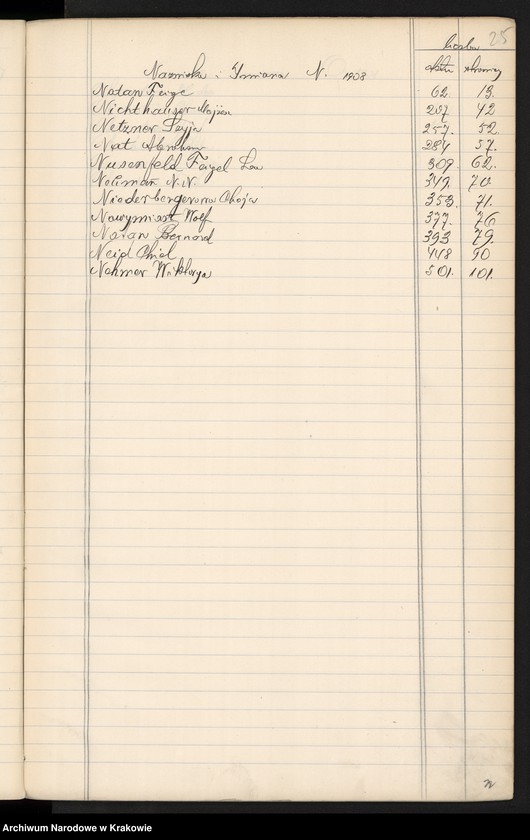 25
liczba
Nazwiska i Imiona N. 1908 aktu strony
Natan Feige 62 13
Nichthauser Mojżesz 207 42
Netzner 257. 52
Nat Abraham 284 57.
Nusenfeld Feigel Lea 309 62.
Neuman N. N. 349. 70
Niederbergerowa Chaja 353. 71.
Nowymiast Wolf 377. 76
Natan Bernard 393 79.
Neid Chiel 448 90
Nehmer Wiktorya 501. 101.
Archiwum Narodowe w Krakowie